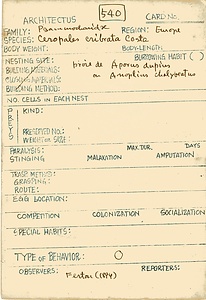 540
ARCHITECTUS CARD No.
FAMILY: Psammodaidx REGION: Europe
SPECIES: Ceropales cribrata Costa
BODY WEIGHT: BODY LENGTH
BURROWING HABIT ( )
NESTING SITE: prise de Aporus dupius
BUILDING MATERIALS: ou Anoplius chalybeatus
CLOSING MATERIALS:
BUILDING METHOD:
NO. CELLS IN EACH NEST
PREY KIND:
PRESERVED No.:
WEIGHT OR SIZE:
PARALYSIS: MAX. DUR. DAYS
STINGING MALAXATION AMPUTATION
TRANSP. METHOD:
GRASPING:
ROUTE:
EGG LOCATION:
COMPETITION COLONIZATION SOCIALIZATION
SPECIAL HABITS:
TYPE OF BEHAVIOR: O
OBSERVERS: Ferton (1894) REPORTERS: